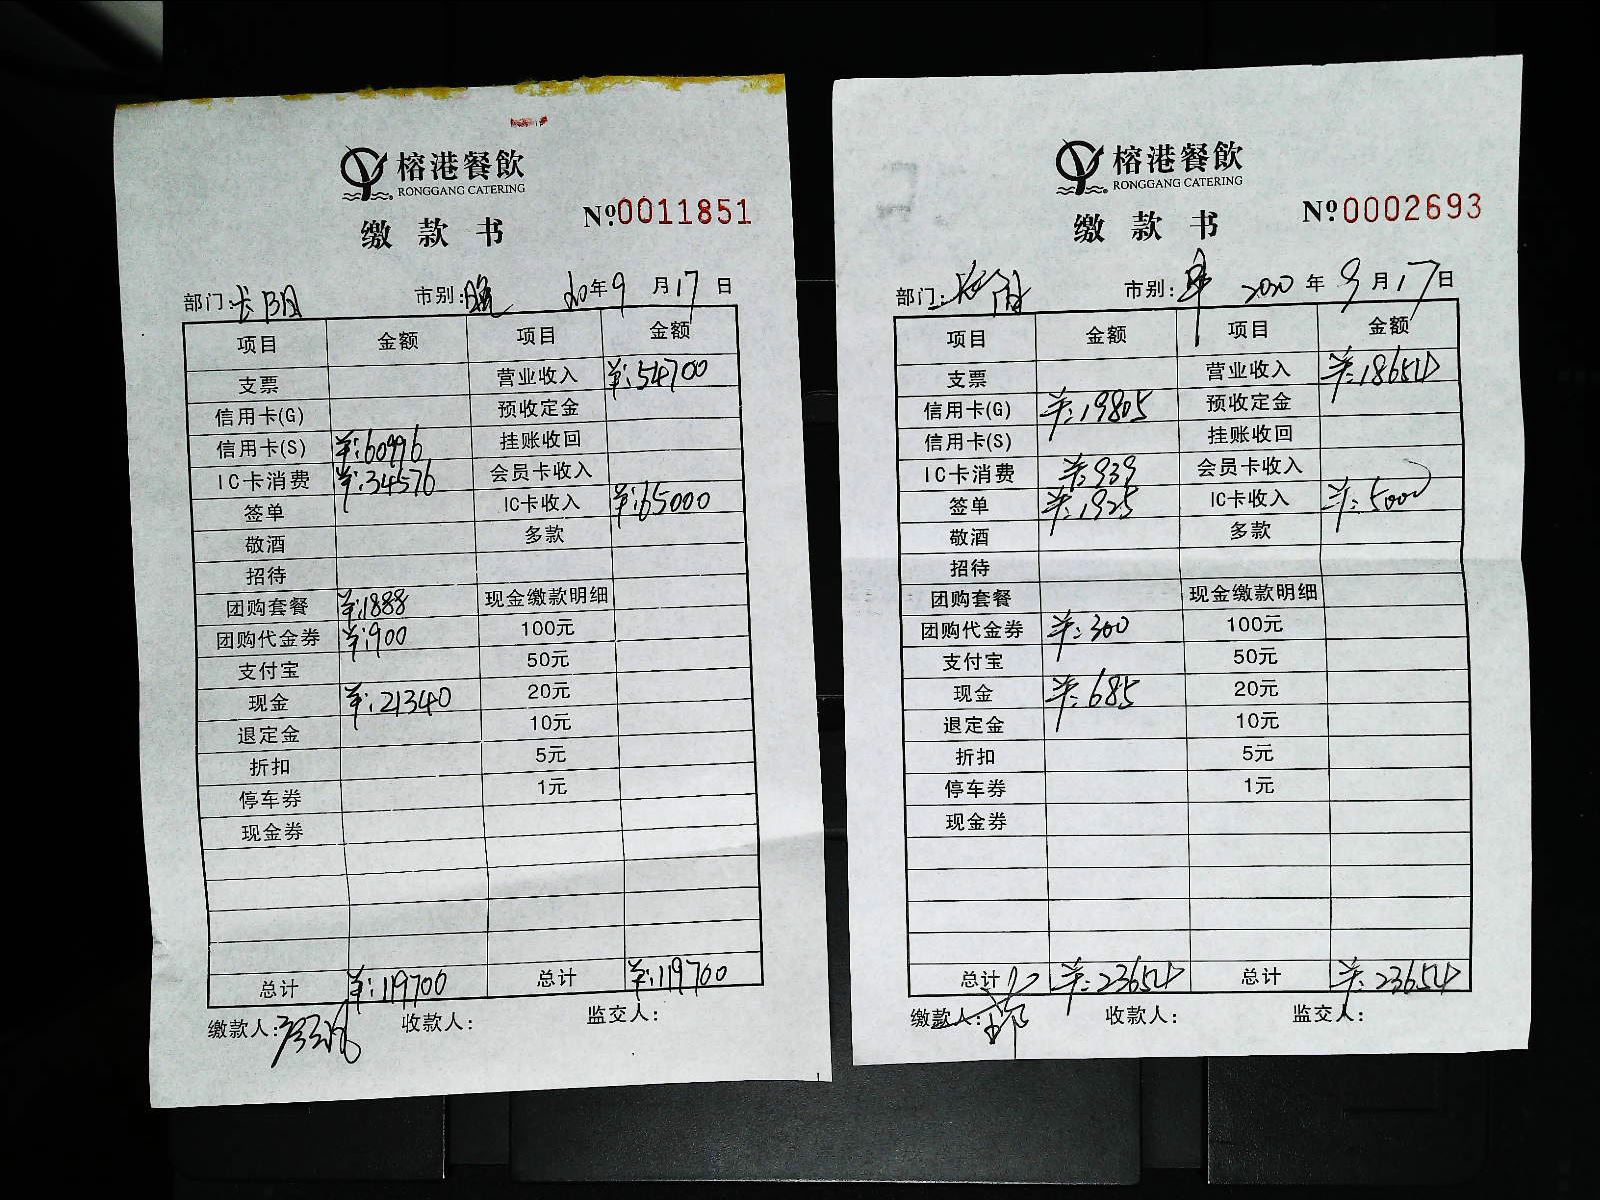 榕港餐飲
RONGGANG CATERING
缴款书 №0011851
部门: 市别:晚 20年9月17日
项目 金额 项目 金额
支票 营业收入 ¥:54700
信用卡(G) 预收定金
信用卡(S) ¥:60996 挂账收回
IC卡消费 ¥:34576 会员卡收入
签单 IC卡收入 ¥:65000
敬酒 多款
招待
团购套餐 ¥:1888 现金缴款明细
团购代金券 ¥:900 100元
支付宝 50元
现金 ¥:21340 20元
退定金 10元
折扣 5元
停车券 1元
现金券
总计 ¥:119700 总计 ¥:119700
缴款人: 收款人: 监交人:
榕港餐飲
RONGGANG CATERING
缴款书 №0002693
部门: 市别:早 2020年9月17日
项目 金额 项目 金额
支票 营业收入 ¥:18654
信用卡(G) ¥:19805 预收定金
信用卡(S) 挂账收回
IC卡消费 ¥:939 会员卡收入
签单 ¥:1925 IC卡收入 ¥:5000
敬酒 多款
招待
团购套餐 现金缴款明细
团购代金券 ¥:300 100元
支付宝 50元
现金 ¥:685 20元
退定金 10元
折扣 5元
停车券 1元
现金券
总计 ¥:23654 总计 ¥:23654
缴款人: 收款人: 监交人: